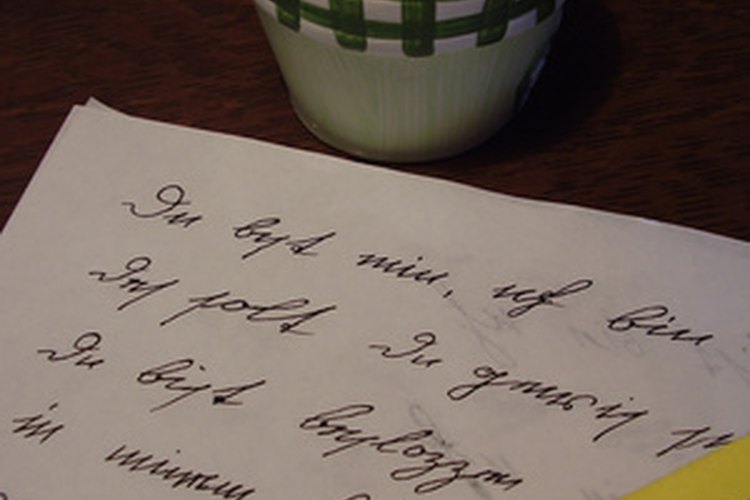 Du bist min, ich bin
Des solt Du gewis
Du bist beslozzen
in minem